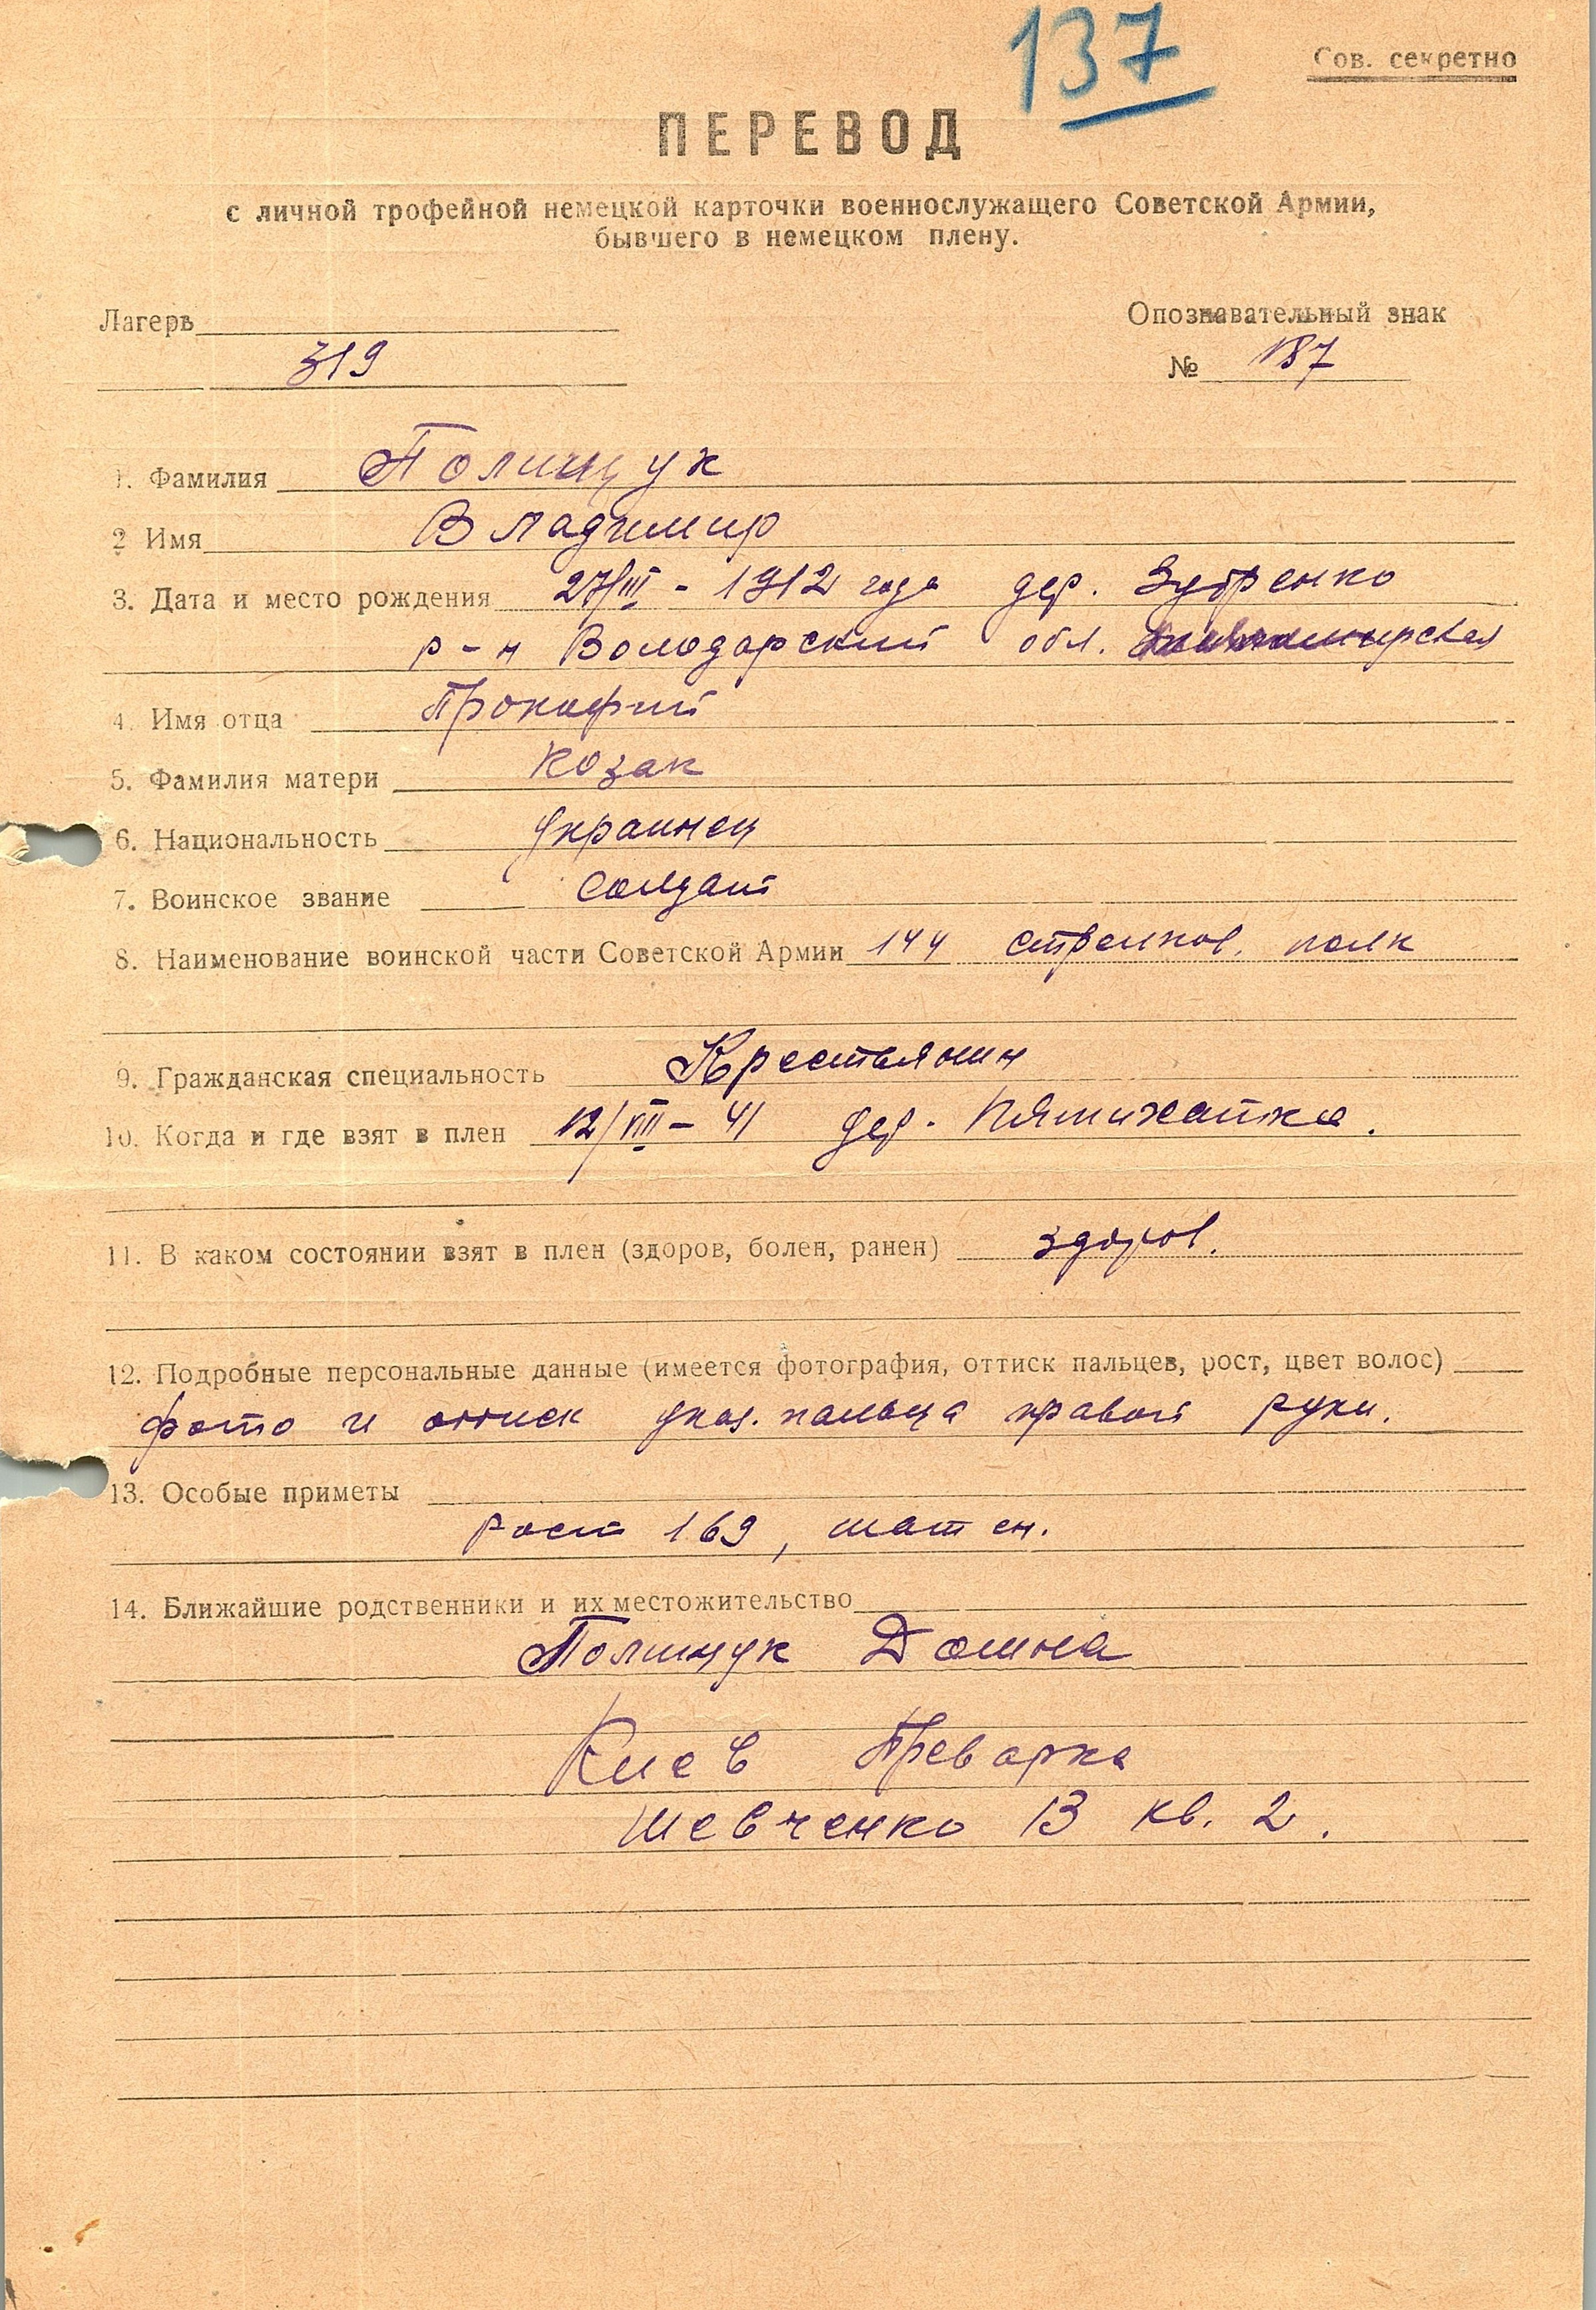 137
Сов. секретно
ПЕРЕВОД
с личной трофейной немецкой карточки военнослужащего Советской Армии,
бывшего в немецком плену.
Лагерь
Опознавательный знак
319
№ 187
1. Фамилия Полищук
2 Имя Владимир
3. Дата и место рождения 27/III - 1912 года дер. Зубренко
р-н Володарский обл.
4. Имя отца Прокофий
5. Фамилия матери Козак
6. Национальность Украинец
7. Воинское звание Солдат
8. Наименование воинской части Советской Армии 144 стрелков. полк
9. Гражданская специальность Крестьянин
10. Когда и где взят в плен 12/VIII - 41 дер. Пятихатка.
11. В каком состоянии взят в плен (здоров, болен, ранен) здоров.
12. Подробные персональные данные (имеется фотография, оттиск пальцев, рост, цвет волос)
фото и оттиск указ. пальца правой руки.
13. Особые приметы
рост 169, шатен.
14. Ближайшие родственники и их местожительство
Полищук Домна
Киев Преварка
Шевченко 13 кв. 2.